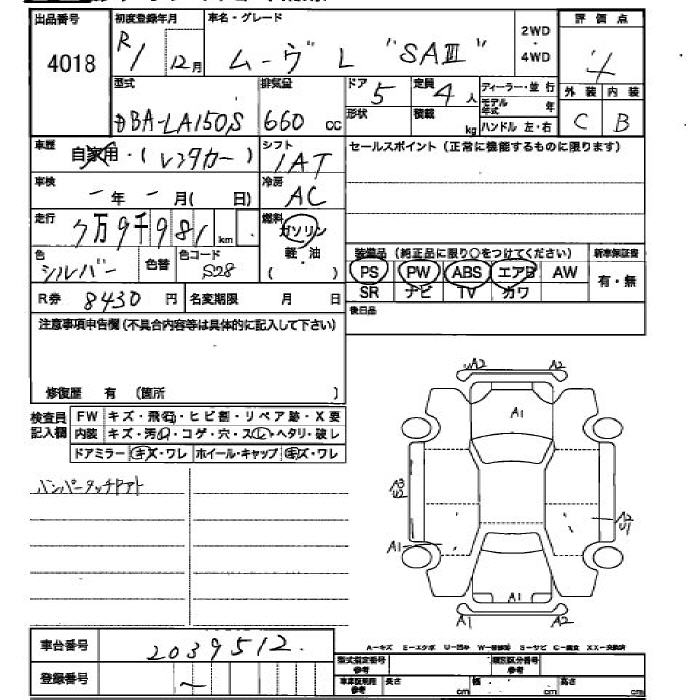 出品番号 初度登録年月 車名・グレード 2WD・4WD 評価点
4018 R1 12月 ムーヴ L "SAⅢ" 4
型式 排気量 ドア 定員 ディーラー・並行 外装 内装
DBA-LA150S 660cc 5 4人 モデル年式 年 C B
形状 積載 kg ハンドル 左・右
車歴 自家用・(レンタカー) シフト IAT セールスポイント(正常に機能するものに限ります)
車検 ー年ー月( 日) 冷房 AC
走行 7万9千981km 燃料 ガソリン
軽・油
( )
色 シルバー 色替 色コード S28
装備品(純正品に限り○をつけてください) 新車保証書
PS PW ABS エアB AW 有・無
SR ナビ TV カワ
R券 8430円 名変期限 月 日
後日品
注意事項申告欄(不具合内容等は具体的に記入して下さい)
修復歴 有 〔箇所 〕
検査員記入欄 FW キズ・飛石・ヒビ割・リペア跡・X要
内装 キズ・汚れ・コゲ・穴・スレ・ヘタリ・破レ
ドアミラー キズ・ワレ ホイール・キャップ キズ・ワレ
バンパータッチアト
A2 A2
A1
A3
U2
A2
U1
A1
A1
A1 A2
車台番号 2039512
登録番号 ~
A−キズ E−エクボ U−凹み W−補修跡 S−サビ C−腐食 XX−交換済
型式指定番号 参考 類別区分番号 参考
車庫証明用 参考 長さ cm 幅 cm 高さ cm